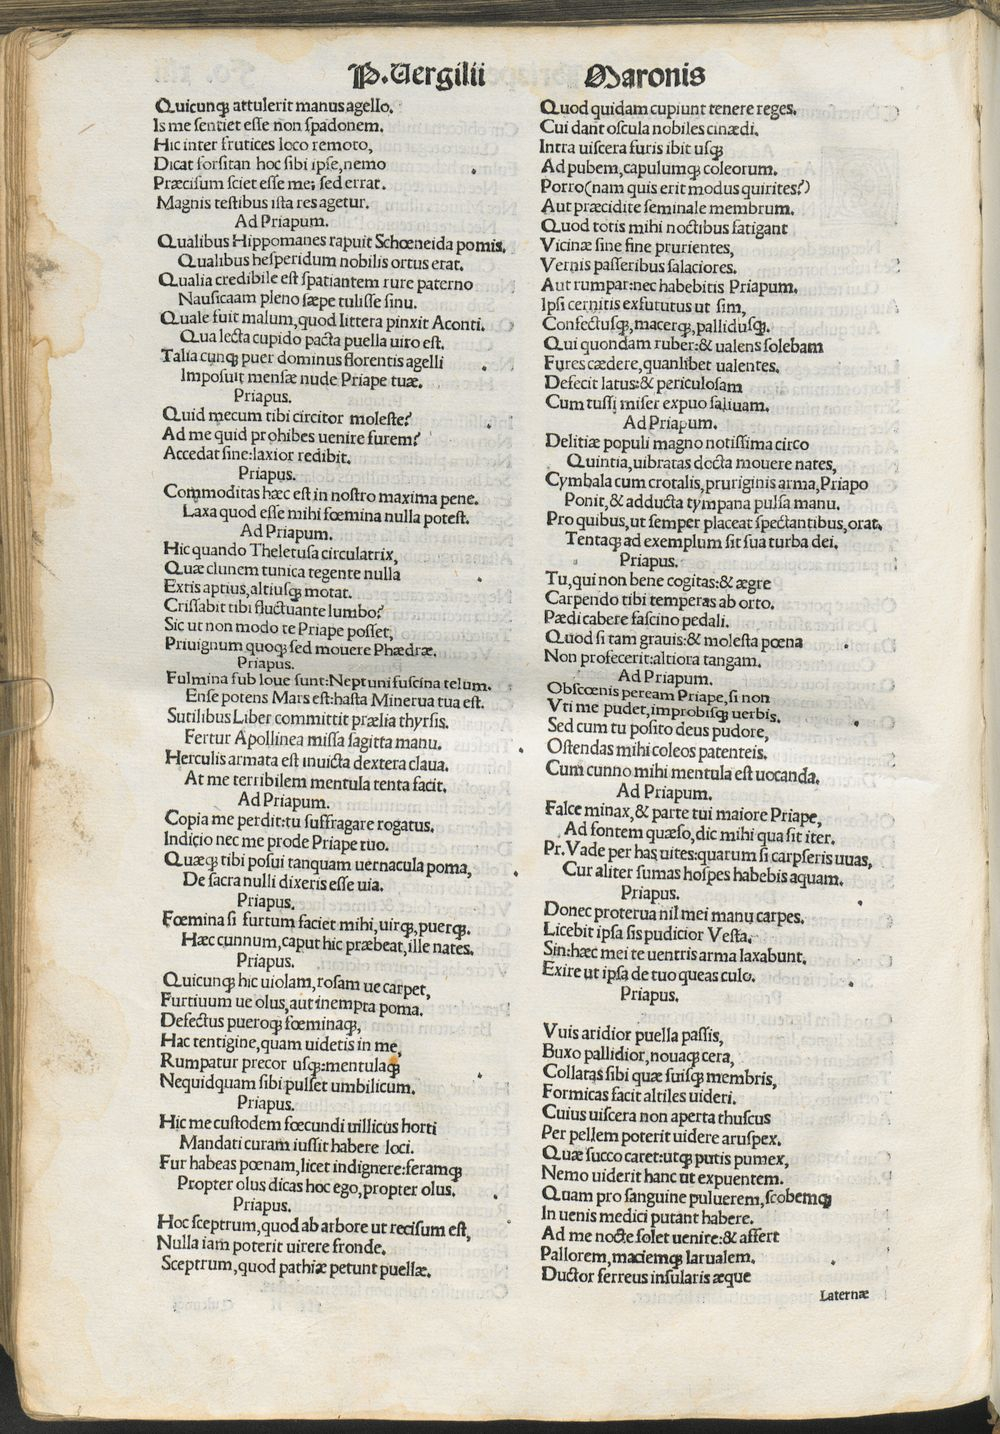 P. Vergilii Maronis
Quicunqȝ attulerit manus agello.
Is me sentiet esse non spadonem.
Hic inter frutices loco remoto,
Dicat forsitan hoc sibi ipse, nemo
Præcisum sciet esse me; sed errat.
Magnis testibus ista res agetur.
Ad Priapum.
Qualibus Hippomanes rapuit Schœneida pomis,
Qualibus hesperidum nobilis ortus erat.
Qualia credibile est spatiantem rure paterno
Nausicaam pleno sæpe tulisse sinu.
Quale fuit malum, quod littera pinxit Aconti.
Qua lecta cupido pacta puella uiro est.
Talia cunqȝ puer dominus florentis agelli
Imposuit mensæ nude Priape tuæ.
Priapus.
Quid mecum tibi circitor moleste?
Ad me quid prohibes uenire furem?
Accedat sine: laxior redibit.
Priapus.
Commoditas hæc est in nostro maxima pene.
Laxa quod esse mihi fœmina nulla potest.
Ad Priapum.
Hic quando Theletusa circulatrix,
Quæ clunem tunica tegente nulla
Extis aptius, altiusqȝ motat.
Crissabit tibi fluctuante lumbo?
Sic ut non modo te Priape posset,
Priuignum quoqȝ sed mouere Phædræ.
Priapus.
Fulmina sub Ioue sunt: Neptuni fuscina telum.
Ense potens Mars est: hasta Minerua tua est.
Sutilibus Liber committit prælia thyrsis.
Fertur Apollinea missa sagitta manu.
Herculis armata est inuicta dextera claua.
At me terribilem mentula tenta facit.
Ad Priapum.
Copia me perdit: tu suffragare rogatus.
Indicio nec me prode Priape tuo.
Quæqȝ tibi posui tanquam uernacula poma,
De sacra nulli dixeris esse uia.
Priapus.
Fœmina si furtum faciet mihi, uirqȝ, puerqȝ.
Hæc cunnum, caput hic præbeat, ille nates.
Priapus.
Quicunqȝ hic uiolam, rosam ue carpet,
Furtiuum ue olus, aut inempta poma.
Defectus pueroqȝ fœminaqȝ,
Hac tentigine, quam uidetis in me,
Rumpatur precor usqȝ: mentulaqȝ
Nequidquam sibi pulset umbilicum.
Priapus.
Hic me custodem fœcundi uillicus horti
Mandati curam iussit habere loci.
Fur habeas pœnam, licet indignere: feramqȝ
Propter olus dicas hoc ego, propter olus.
Priapus.
Hoc sceptrum, quod ab arbore ut recisum est,
Nulla iam poterit uirere fronde.
Sceptrum, quod pathiæ petunt puellæ.
Quod quidam cupiunt tenere reges.
Cui dant oscula nobiles cinædi.
Intra uiscera furis ibit usqȝ
Ad pubem, capulumqȝ coleorum.
Porro (nam quis erit modus quirites?)
Aut præcidite seminale membrum.
Quod totis mihi noctibus fatigant
Vicinæ sine fine prurientes,
Vernis passeribus salaciores.
Aut rumpar: nec habebitis Priapum.
Ipsi cernitis exfututus ut sim,
Confectusqȝ, macerqȝ, pallidusqȝ.
Qui quondam ruber: & ualens solebam
Fures cædere, quanlibet ualentes.
Defecit latus: & periculosam
Cum tussi miser expuo saliuam.
Ad Priapum.
Delitiæ populi magno notissima circo
Quintia, uibratas docta mouere nates,
Cymbala cum crotalis, pruriginis arma, Priapo
Ponit, & adducta tympana pulsa manu.
Pro quibus, ut semper placeat spectantibus, orat.
Tentaqȝ ad exemplum sit sua turba dei.
Priapus.
Tu, qui non bene cogitas: & ægre
Carpendo tibi temperas ab orto.
Pædicabere fascino pedali.
Quod si tam grauis: & molesta pœna
Non profecerit: altiora tangam.
Ad Priapum.
Obscœnis peream Priape, si non
Vti me pudet, improbisqȝ uerbis.
Sed cum tu posito deus pudore,
Ostendas mihi coleos patenteis.
Cum cunno mihi mentula est uocanda.
Ad Priapum.
Falce minax, & parte tui maiore Priape,
Ad fontem quæso, dic mihi qua sit iter.
Pr. Vade per has uites: quarum si carpseris uuas,
Cur aliter sumas hospes habebis aquam.
Priapus.
Donec proterua nil mei manu carpes.
Licebit ipsa sis pudicior Vesta.
Sin: hæc mei te uentris arma laxabunt.
Exire ut ipsa de tuo queas culo.
Priapus.
Vuis aridior puella passis,
Buxo pallidior, nouaqȝ cera,
Collatas sibi quæ suisqȝ membris,
Formicas facit altiles uideri.
Cuius uiscera non aperta thuscus
Per pellem poterit uidere aruspex.
Quæ succo caret: utqȝ putis pumex,
Nemo uiderit hanc ut expuentem.
Quam pro sanguine puluerem, scobemqȝ
In uenis medici putant habere.
Ad me nocte solet uenire: & affert
Pallorem, maciemqȝ larualem.
Ductor ferreus insularis æque
Laternæ